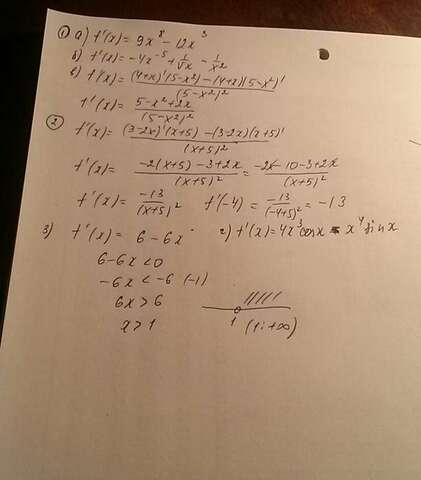 ① а) f'(x) = 9x⁸ - 12x³
б) f'(x) = -4x⁻⁵ + 1/√x - 1/x²
в) f'(x) = ((4+x)'(5-x²) - (4+x)(5-x²)')/(5-x²)²
f'(x) = (5-x²+2x)/(5-x²)²
② f'(x) = ((3-2x)'(x+5) - (3-2x)(x+5)')/(x+5)²
f'(x) = (-2(x+5) - 3+2x)/(x+5)² = (-2x - 10 - 3+2x)/(x+5)²
f'(x) = -13/(x+5)² f'(-4) = -13/(-4+5)² = -13
3) f'(x) = 6 - 6x г) f'(x) = 4x³cosx - x⁴sinx
6-6x < 0
-6x < -6 (-1)
6x > 6
x > 1
1 (1; +∞)